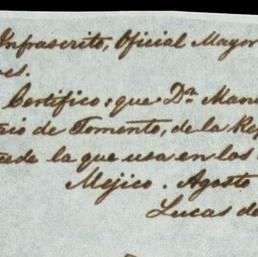 Infrascrito, Oficial Mayor
es.
Certifico: que Dn. Man
rio de Fomento, de la Re
ede la que usa en los
Mejico. Agosto
Lucas de